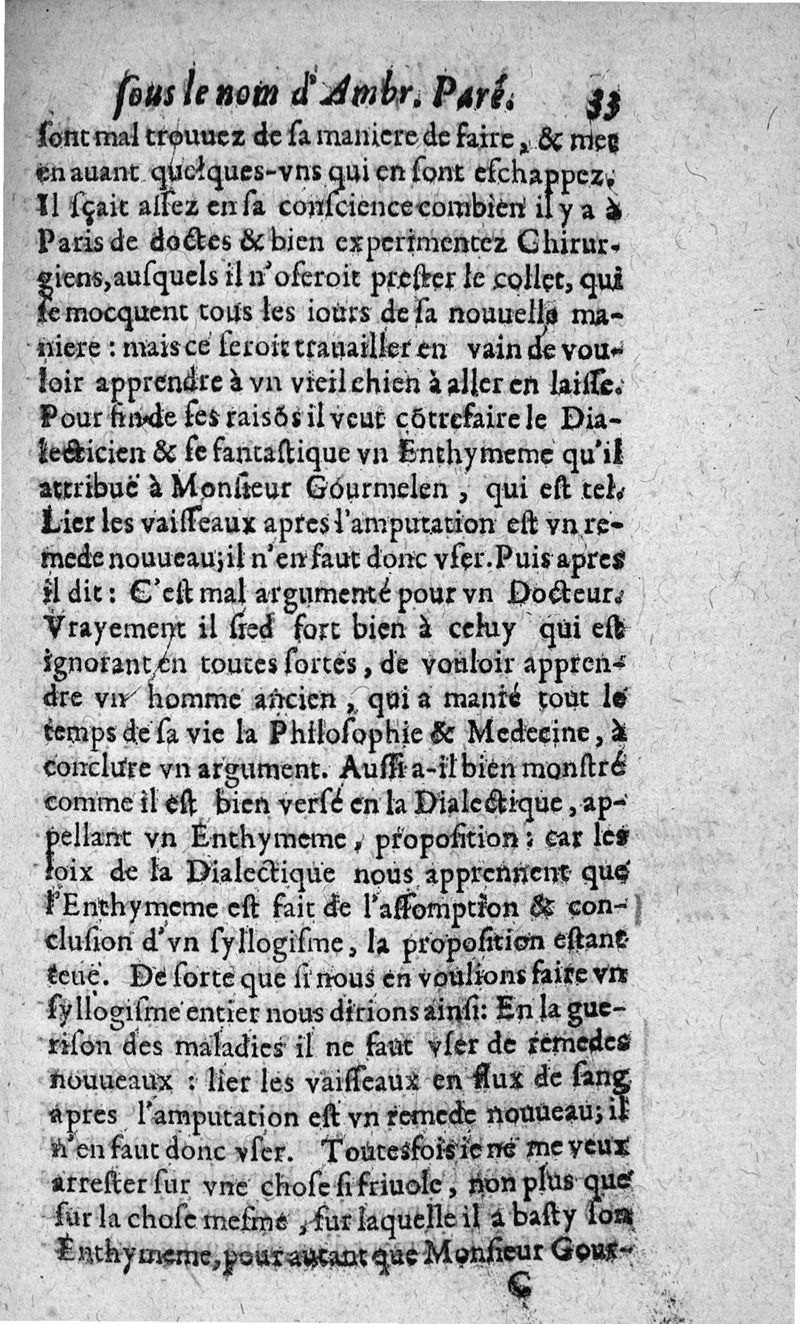 ſous le nom d'Ambr. Paré. 33
ſont mal trouuez de ſa maniere de faire, & met
en auant quelques-vns qui en ſont eſchappez.
Il ſçait aſſez en ſa conſcience combien il y a à
Paris de doctes & bien experimentez Chirur-
giens, auſquels il n'oſeroit preſter le collet, qui
ſe mocquent tous les iours de ſa nouuelle ma-
niere : mais ce ſeroit trauailler en vain de vou-
loir apprendre à vn vieil chien à aller en laiſſe.
Pour fin de ſes raiſõs il veut cõtrefaire le Dia-
lecticien & ſe fantaſtique vn Enthymeme qu'il
attribuë à Monſieur Gourmelen, qui eſt tel.
Lier les vaiſſeaux apres l'amputation eſt vn re-
mede nouueau; il n'en faut donc vſer. Puis apres
il dit : C'eſt mal argumenté pour vn Docteur.
Vrayement il ſied fort bien à celuy qui eſt
ignorant en toutes ſortes, de vouloir appren-
dre vn homme ancien, qui a manié tout le
temps de ſa vie la Philoſophie & Medecine, à
conclure vn argument. Auſſi a-il bien monſtré
comme il eſt bien verſé en la Dialectique, ap-
pellant vn Enthymeme, propoſition : car les
loix de la Dialectique nous apprennent que
l'Enthymeme eſt fait de l'aſſomption & con-
cluſion d'vn ſyllogiſme, la propoſition eſtant
teuë. De ſorte que ſi nous en voulions faire vn
ſyllogiſme entier nous dirions ainſi: En la gue-
riſon des maladies il ne faut vſer de remedes
nouueaux : lier les vaiſſeaux en flux de ſang
apres l'amputation eſt vn remede nouueau; il
n'en faut donc vſer. Toutesfois ie ne me veux
arreſter ſur vne choſe ſi friuole, non plus que
ſur la choſe meſme, ſur laquelle il a baſty ſon
Enthymeme, pour autant que Monſieur Gour-
C